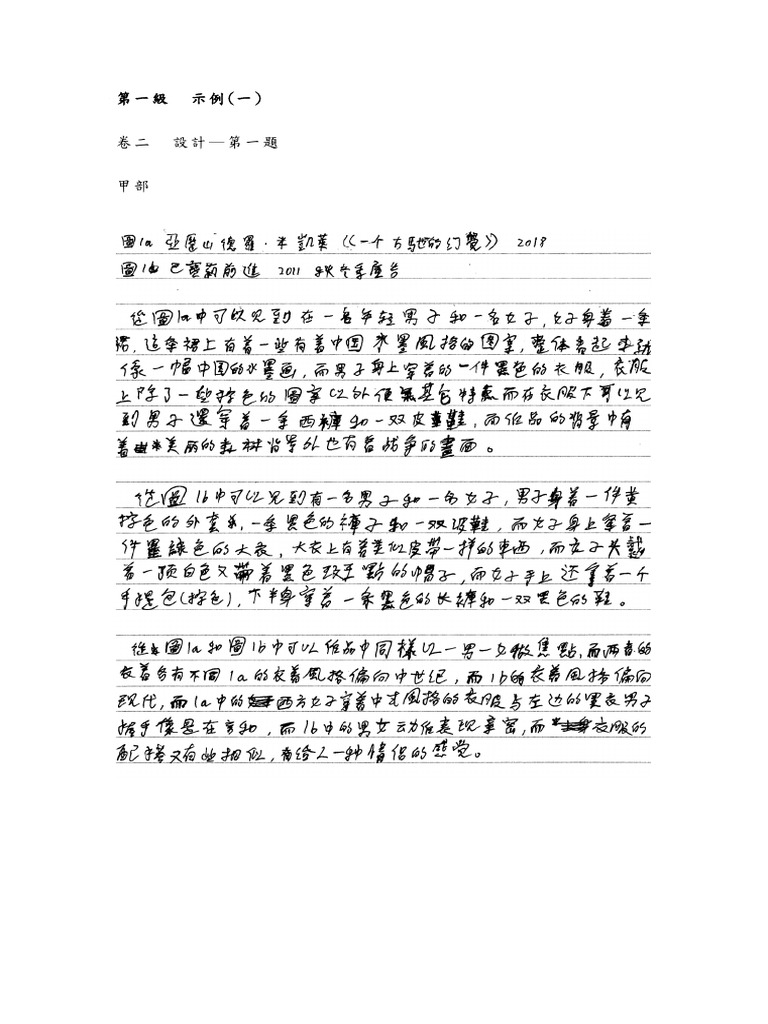 第一級 示例(一)
卷二 設計—第一題
甲部
圖1a 亞歷山德羅·米凱萊《一个方馳的幻覺》 2018
圖1b 巴寶莉前進 2011 秋冬季廣告
從圖1a中可以見到在一名年轻男子和一名女子,女子身着一条
裙,這条裙上有着一些有着中国水墨風格的图案,整体看起來就
像一幅中国的水墨画,而男子身上穿着的一件黑色的衣服,衣服
上除了一些棕色的图案以外便無其它特點而在衣服下可以見
到男子還穿着一条西褲和一双皮鞋,而作品的背景中有
着美丽的森林背景外也有着战争的畫面。
從圖1b中可以見到有一名男子和一名女子,男子身着一件黄
棕色的外套,一条黑色的褲子和一双皮鞋,而女子身上穿着一
件墨綠色的大衣,大衣上有着类似皮帶一样的東西,而女子头戴
着一顶白色又帶着黑色斑點的帽子,而女子手上还拿着一个
手提包(棕色),下半身穿着一条黑色的长褲和一双黑色的鞋。
從圖1a和圖1b中可以作品中同樣以一男一女做焦點,而兩者的
衣着各有不同1a的衣着風格偏向中世纪,而1b的衣着風格偏向
现代,而1a中的西方女子穿着中式風格的衣服与左边的黑衣男子
握手像是在求和,而1b中的男女动作表现亲密,而衣服的
配搭又有些相似,有给人一种情侣的感觉。